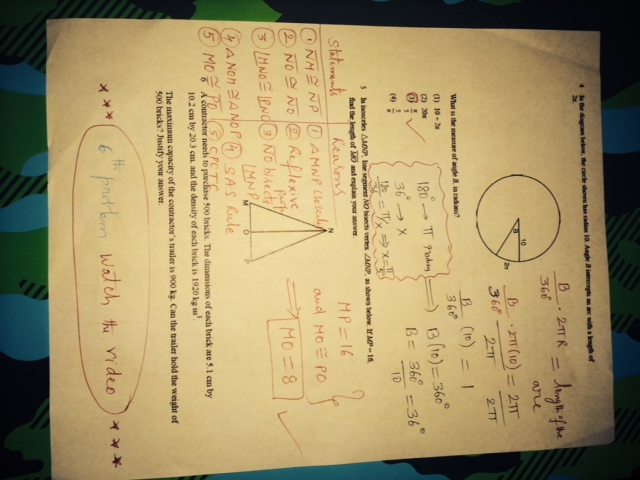 4 In the diagram below, the circle shown has radius 10. Angle B intercepts an arc with a length of
2π.
B/360° · 2πR = length of the arc
B/360° · 2π(10)/2π = 2π/2π
B/360° (10) = 1
⇒ B(10) = 360°
B = 360°/10 = 36°
10
B
2π
What is the measure of angle B, in radians?
(1) 10 + 2π
(2) 20π
(3) π/5
(4) 5/π
180° → π radian
36° → X
⇒ X = π/5
5 In isosceles △MNP, line segment NO bisects vertex ∠MNP, as shown below. If MP = 16,
find the length of MO and explain your answer.
Statements Reasons
① NM ≅ NP ① △MNP isosceles
② NO ≅ NO ② Reflexive
③ ∠MNO ≅ ∠PNO ③ NO bisects ∠MNP
④ △NOM ≅ △NOP ④ SAS Rule
⑤ MO ≅ PO ⑤ CPCTC
N
M
O
P
MP = 16
and MO ≅ PO
⇒ MO = 8
6 A contractor needs to purchase 500 bricks. The dimensions of each brick are 5.1 cm by
10.2 cm by 20.3 cm, and the density of each brick is 1920 kg/m³.
The maximum capacity of the contractor's trailer is 900 kg. Can the trailer hold the weight of
500 bricks? Justify your answer.
*** 6th problem watch the video ***